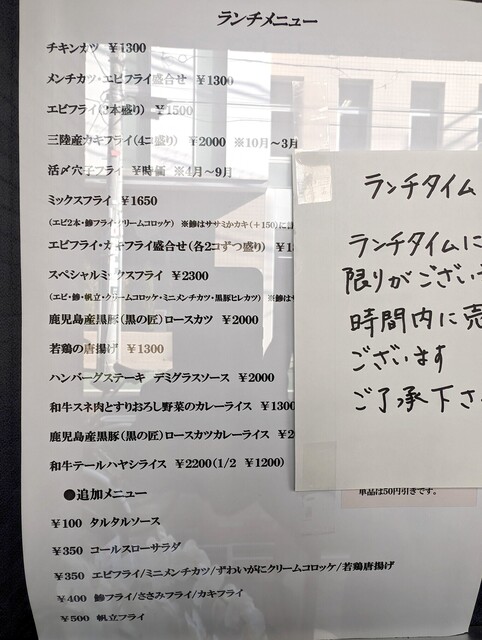 ランチメニュー
チキンカツ ¥1300
メンチカツ・エビフライ盛合せ ¥1300
エビフライ(3本盛り) ¥1500
三陸産カキフライ(4コ盛り) ¥2000 ※10月～3月
活〆穴子フライ ¥時価 ※4月～9月
ミックスフライ ¥1650
(エビ2本・鰺フライ・クリームコロッケ) ※鰺はササミかカキ(+150)に
エビフライ・カキフライ盛合せ(各2コずつ盛り) ¥1
スペシャルミックスフライ ¥2300
(エビ・鰺・帆立・クリームコロッケ・ミニメンチカツ・黒豚ヒレカツ) ※鰺は
鹿児島産黒豚(黒の匠)ロースカツ ¥2000
若鶏の唐揚げ ¥1300
ハンバーグステーキ デミグラスソース ¥2000
和牛スネ肉とすりおろし野菜のカレーライス ¥1300
鹿児島産黒豚(黒の匠)ロースカツカレーライス ¥2
和牛テールハヤシライス ¥2200(1/2 ¥1200)
単品は50円引きです。
●追加メニュー
¥100 タルタルソース
¥350 コールスローサラダ
¥350 エビフライ/ミニメンチカツ/ずわいがにクリームコロッケ/若鶏唐揚げ
¥400 鰺フライ/ささみフライ/カキフライ
¥500 帆立フライ
ランチタイム
ランチタイムに
限りがござい
時間内に売
ございます
ご了承下さ